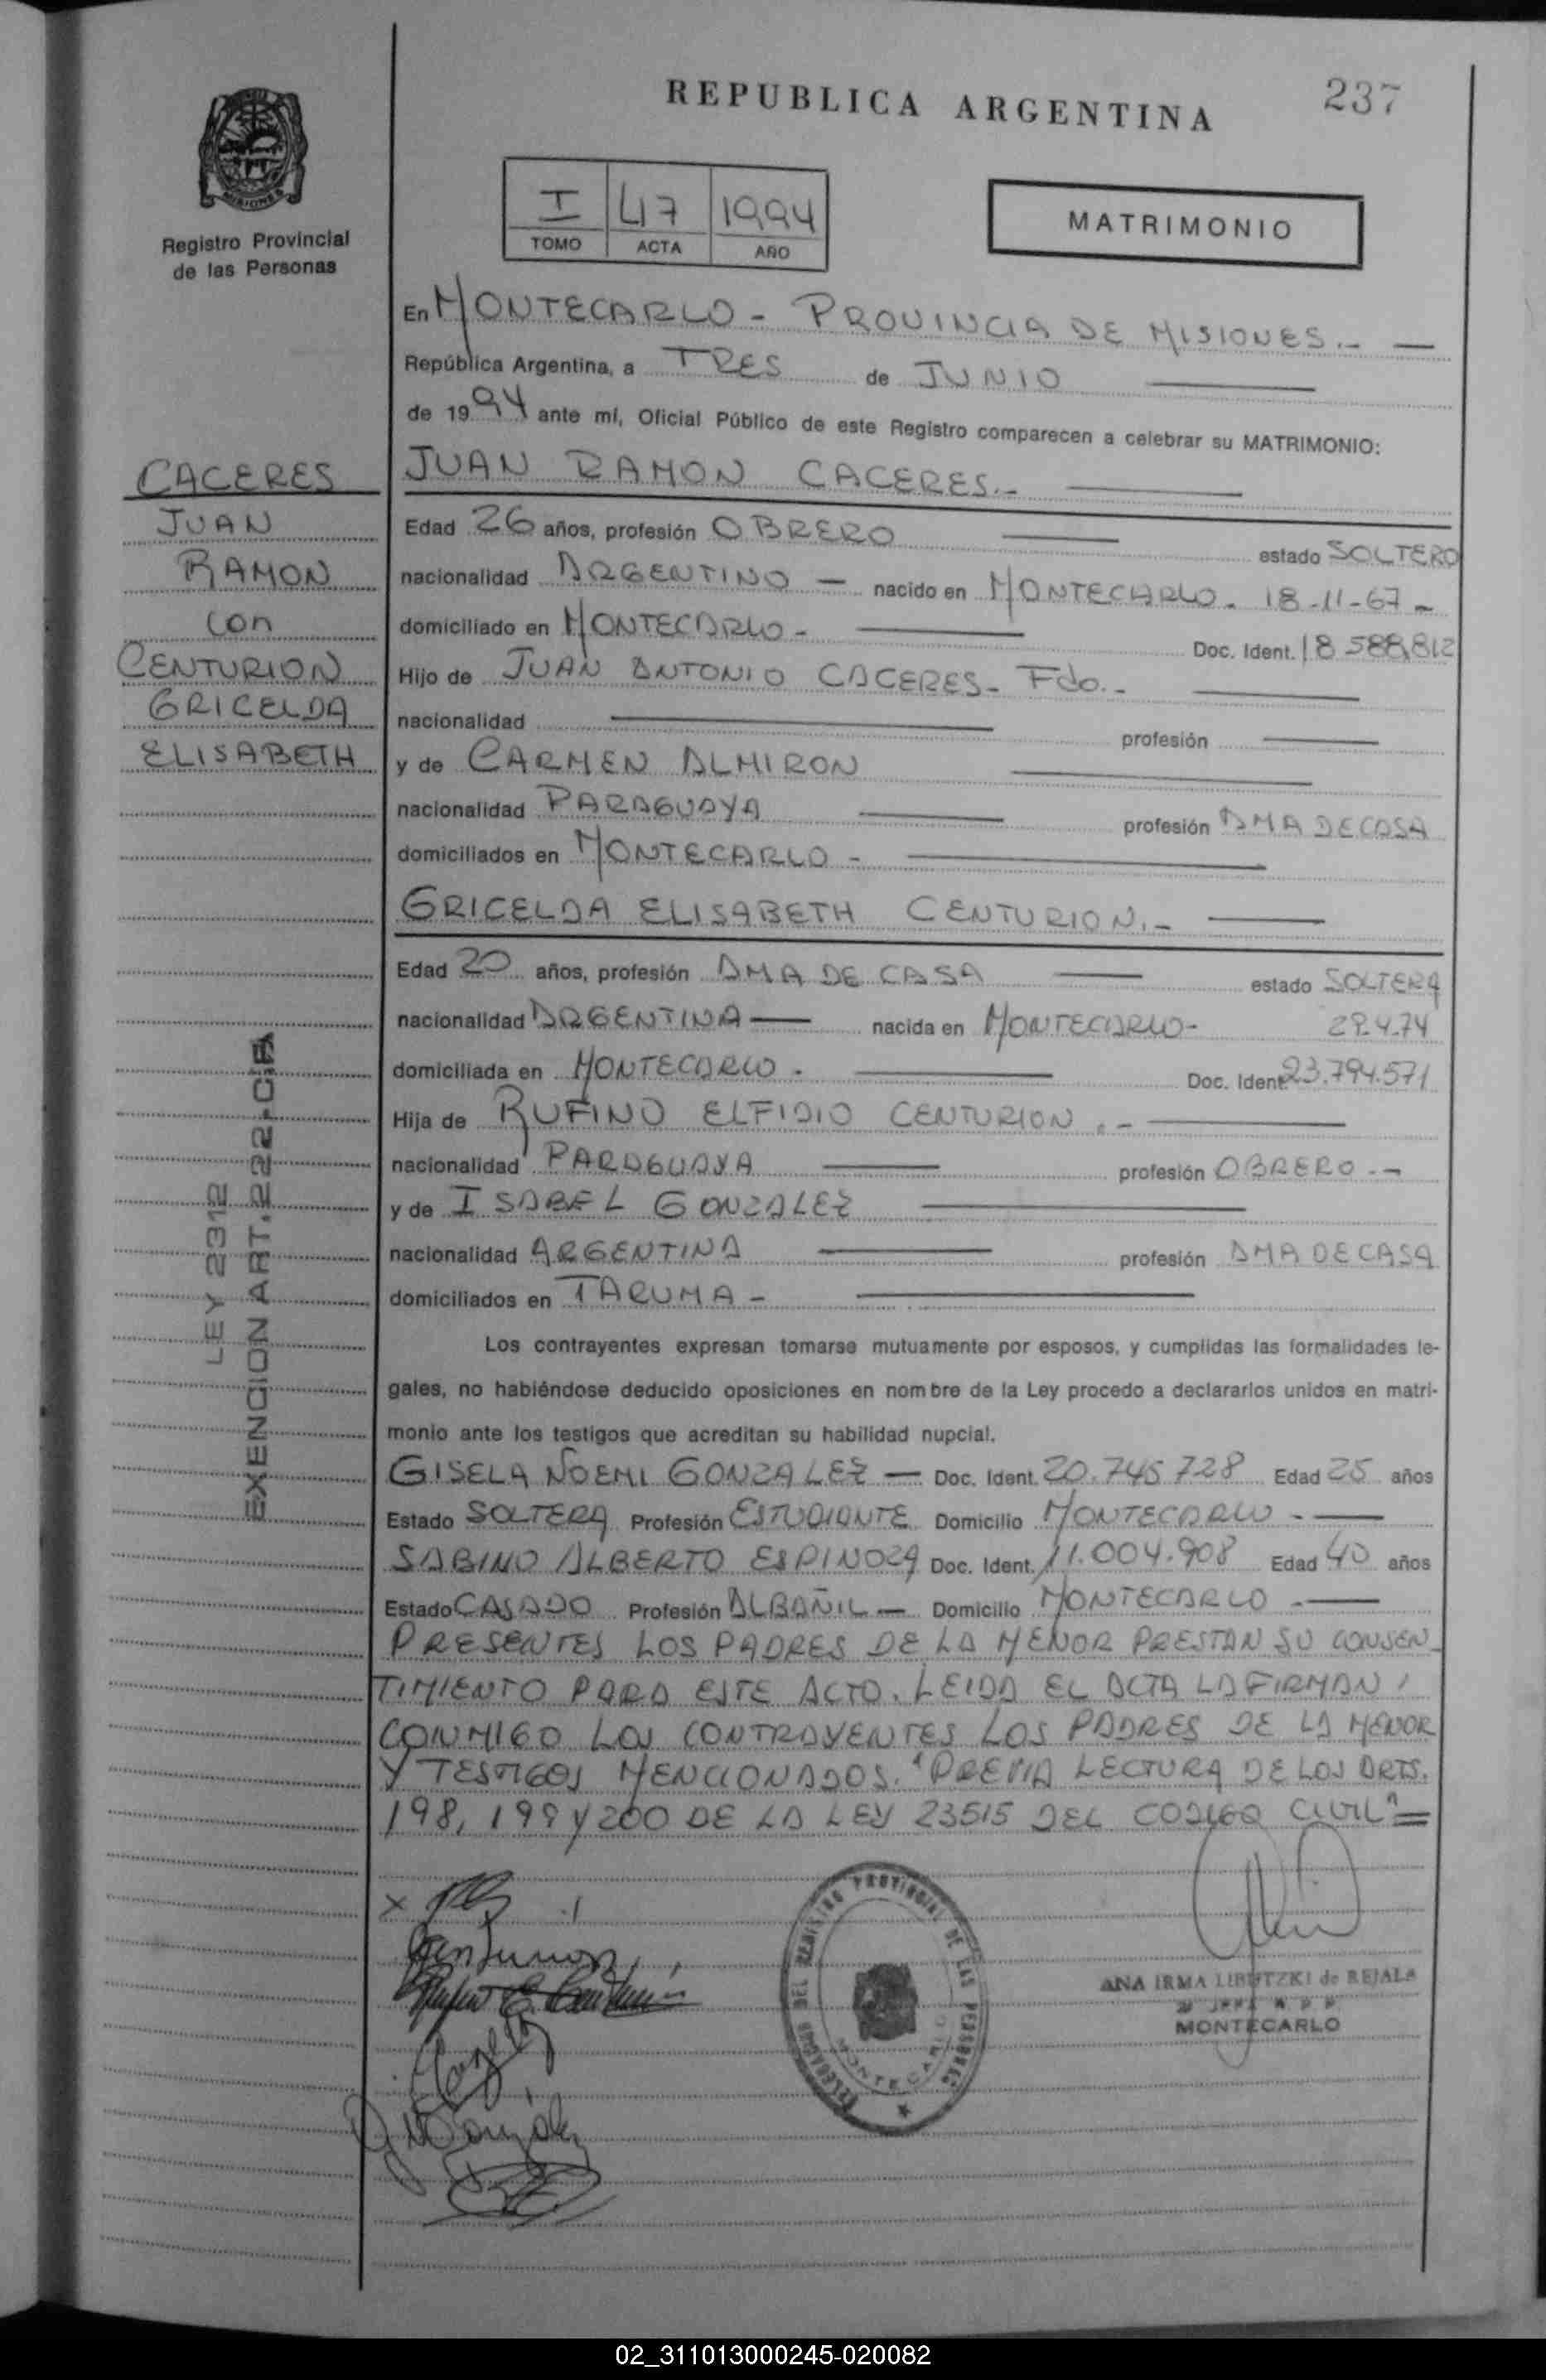 REPUBLICA ARGENTINA
237
MISIONES
Registro Provincial
de las Personas
I 47 1994
TOMO ACTA AÑO
MATRIMONIO
En MONTECARLO - PROVINCIA DE MISIONES.-
República Argentina, a TRES de JUNIO
de 1994 ante mí, Oficial Público de este Registro comparecen a celebrar su MATRIMONIO:
CACERES
JUAN
RAMON
con
CENTURION
GRICELDA
ELISABETH
LEY 2312
EXENCION ART. 222-C/A
JUAN RAMON CACERES.-
Edad 26 años, profesión OBRERO estado SOLTERO
nacionalidad ARGENTINO - nacido en MONTECARLO - 18-11-67-
domiciliado en MONTECARLO - Doc. Ident. 18.588.812
Hijo de JUAN ANTONIO CACERES - Fdo.-
nacionalidad profesión
y de CARMEN ALMIRON
nacionalidad PARAGUAYA profesión AMA DE CASA
domiciliados en MONTECARLO -
GRICELDA ELISABETH CENTURION.-
Edad 20 años, profesión AMA DE CASA estado SOLTERA
nacionalidad ARGENTINA nacida en MONTECARLO - 29.4.74
domiciliada en MONTECARLO. Doc. Ident. 23.794.571
Hija de RUFINO ELFIDIO CENTURION.-
nacionalidad PARAGUAYA profesión OBRERO.-
y de ISABEL GONZALEZ
nacionalidad ARGENTINA profesión AMA DE CASA
domiciliados en TARUMA -
Los contrayentes expresan tomarse mutuamente por esposos, y cumplidas las formalidades le-
gales, no habiéndose deducido oposiciones en nombre de la Ley procedo a declararlos unidos en matri-
monio ante los testigos que acreditan su habilidad nupcial.
GISELA NOEMI GONZALEZ - Doc. Ident. 20.745.728 Edad 25 años
Estado SOLTERA Profesión ESTUDIANTE Domicilio MONTECARLO -
SABINO ALBERTO ESPINOZA Doc. Ident. 11.004.908 Edad 40 años
Estado CASADO Profesión ALBAÑIL - Domicilio MONTECARLO -
PRESENTES LOS PADRES DE LA MENOR PRESTAN SU CONSEN-
TIMIENTO PARA ESTE ACTO. LEIDA EL ACTA LA FIRMAN
CONMIGO LOS CONTRAYENTES LOS PADRES DE LA MENOR
Y TESTIGOS MENCIONADOS. "PREVIA LECTURA DE LOS ARTS.
198, 199 Y 200 DE LA LEY 23515 DEL CODIGO CIVIL"=
X
Centurion
DEL REGISTRO PROVINCIAL DE LAS PERSONAS
MONTECARLO
ANA IRMA LIBUTZKI de REJALA
MONTECARLO
02_311013000245-020082